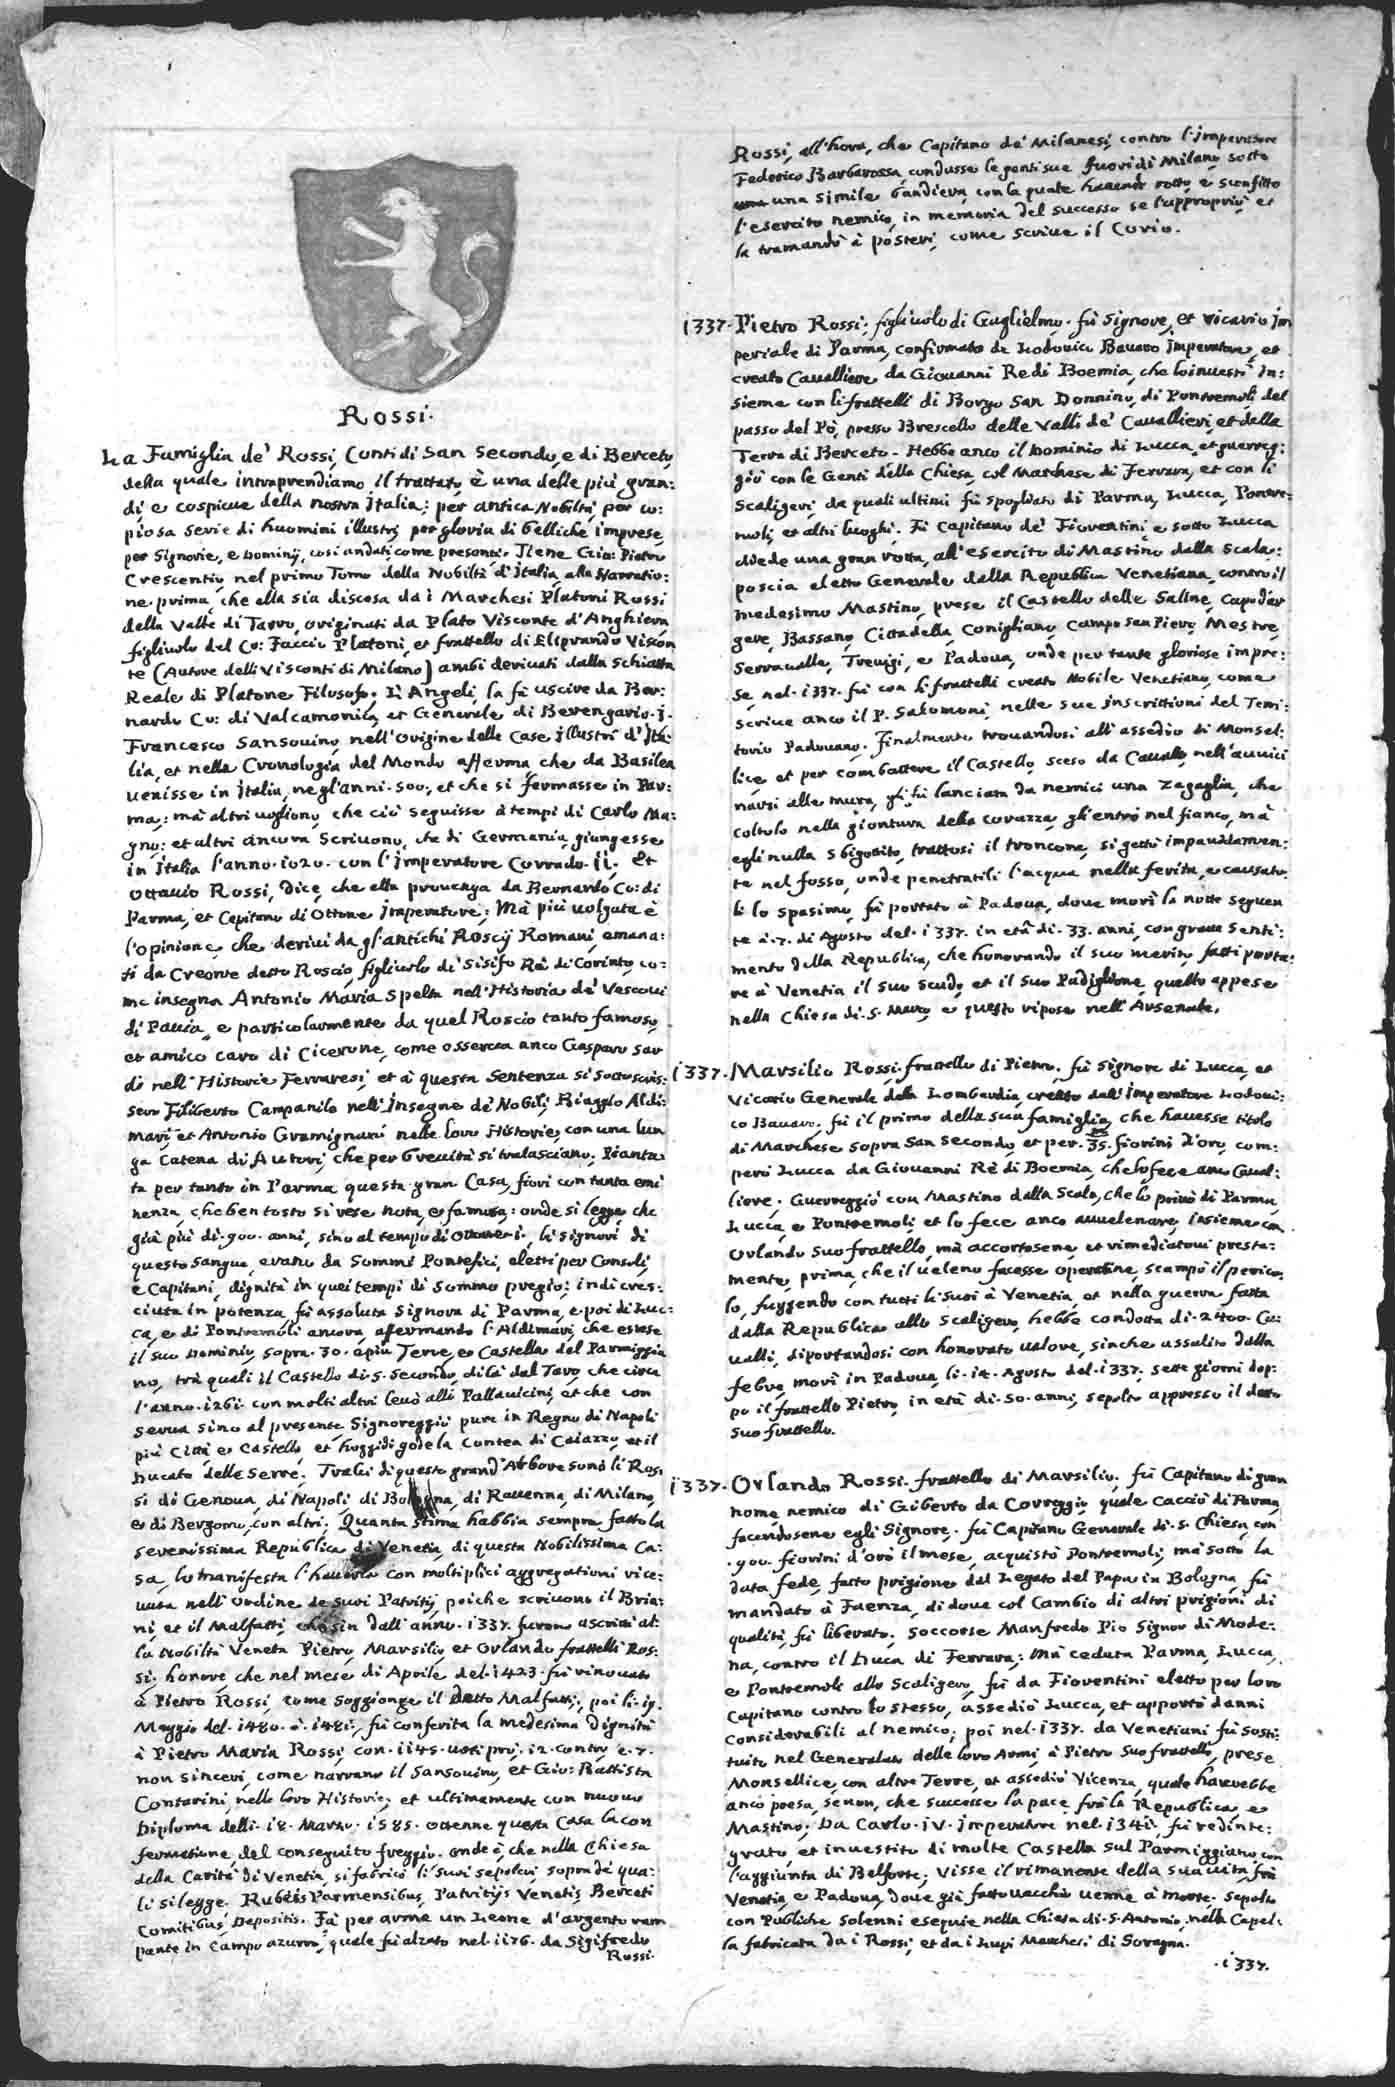 Rossi.
La Famiglia de' Rossi, Conti di San Secondo, e di Berceto,
della quale intraprendiamo il trattato, è una delle più gran:
di, e cospicue della nostra Italia; per antica Nobiltà, per co:
piosa serie di huomini illustri, per gloria di belliche imprese,
per Signorie, e Dominij, così andati come presenti. Tiene Gio: Pietro
Crescentij, nel primo Tomo della Nobiltà d'Italia, alla Narratio:
ne prima, che ella sia discesa da i Marchesi Platoni Rossi
della Valle di Tarro, originati da Plato Visconte d'Anghiera,
figliuolo del Co: Faccio Platoni, et frattello di Eliprando Viscon
te (Autore delli Visconti di Milano) ambi derivati dalla Schiatta
Reale di Platone Filosofo. L'Angeli, la fà uscire da Ber:
nardo Co: di Valcamonica, et Generale di Berengario. j.
Francesco Sansovino, nell'Origine delle Case illustri d'Ita:
lia, et nella Cronologia del Mondo afferma che da Basilea
venisse in Italia, negl'anni. 500., et che si fermasse in Par:
ma; mà altri vogliono, che ciò seguisse à tempi di Carlo Ma:
gno; et altri ancora scrivono, che di Germania, giungesse
in Italia l'anno. 1020. con l'Imperatore Corrado. ij. Et
Ottavio Rossi, dice, che ella provenga da Bernardo Co: di
Parma, et Capitano di Ottone Imperatore; Mà più volgata è
l'opinione, che derivi da gl'antichi Roscij Romani, emana:
ti da Creonte detto Roscio, figliuolo di Sisifo Rè di Corinto, co:
me insegna Antonio Maria Spelta nell'Historia de' Vescovi
di Pavia, e particolarmente da quel Roscio tanto famoso,
et amico caro di Cicerone, come osserva anco Gasparo Sar
di nell'Historie Ferraresi, et à questa sentenza si sottoscris:
sero Filiberto Campanile nell'Insegne de' Nobili, Biaggio Aldi:
mari, et Antonio Gramignani nelle loro Historie, con una lun
ga Catena di Autori, che per brevità si tralasciano. Pianta
ta per tanto in Parma questa gran Casa, fiorì con tanta emi
nenza, che ben tosto si rese nota, e famosa: onde si legge, che
già più di. 900. anni, sino al tempo di Ottone. i., li Signori di
questo Sangue, erano da Sommi Pontefici, eletti per Consoli,
e Capitani, dignità in quei tempi di sommo pregio; indi cres:
ciuta in potenza, fù assoluta Signora di Parma, e poi di Luc:
ca, e di Pontremoli ancora, affermando l'Aldimari, che estese
il suo Dominio, sopra. 30. e più Terre, e Castella del Parmiggia
no, trà quali il Castello di S. Secondo, di là dal Taro, che circa
l'anno. 1261. con molti altri levò alli Pallavicini, et che con
serva sino al presente. Signoreggiò pure in Regno di Napoli
più Città e Castella, et hoggidì gode la Contea di Caiazzo, et il
Ducato delle Serre. Tralci di questo grand'Arbore sono li Ros
si di Genova, di Napoli, di Bologna, di Ravenna, di Milano,
e di Bergomo, con altri. Quanta stima habbia sempre fatto la
Serenissima Republica di Venetia, di questa Nobilissima Ca:
sa, lo manifesta l'haverla con moltiplici aggregationi rice:
vuta nell'Ordine de suoi Patritij, poiche scrivono il Bria:
ni et il Malfatti, che sin dall'anno. 1337. furono ascritti al:
la Nobiltà Veneta Pietro, Marsilio, et Orlando frattelli Ros:
si, honore, che nel mese di Aprile del. 1423. fù rinovato
à Pietro Rossi, come soggionge il detto Malfatti; poi li. 19.
Maggio del. 1480. ò. 1481., fù conferita la medesima dignità
à Pietro Maria Rossi, con. 1145. voti prò. 12. contro, e. 7.
non sinceri, come narrano il Sansovino, et Gio: Battista
Contarini, nelle loro Historie; et ultimamente con nuovo
Diploma delli. 18. Marzo. 1585. ottenne questa Casa la con
fermatione del conseguito freggio. onde è, che nella Chiesa
della Carità di Venetia, si fabricò li suoi sepolcri, sopra de qua:
li si legge. Rubeis Parmensibus, Patritijs Venetis, Berceti
Comitibus Depositis. Fà per arme un Leone d'argento ram
pante in Campo azurro, quale fù alzato nel. 1176. da Sigifredo
Rossi.
Rossi, all'hora, che Capitano de' Milanesi, contro l'Imperatore
Federico Barbarossa, condusse le genti sue fuori di Milano, sotto
una simile bandiera, con la quale havendo rotto, e sconfitto
l'esercito nemico, in memoria del successo se l'appropriò, et
la tramandò à posteri, come scrive il Corio.
1337. Pietro Rossi, figliuolo di Guglielmo. fù Signore, et Vicario Im
periale di Parma, confirmato da Lodovico Bavaro Imperatore, et
creato Cavalliere da Giovanni Re di Boemia, che lo investì in:
sieme con li frattelli di Borgo San Donnino, di Pontremoli, del
passo del Pò, presso Brescello, delle Valli de' Cavallieri, et della
Terra di Berceto. Hebbe anco il Dominio di Lucca, et guerreg:
giò con le Genti della Chiesa, col Marchese di Ferrara, et con li
Scaligeri, da quali ultimi fù spogliato di Parma, Lucca, Pontre:
moli, et altri luoghi. Fù Capitano de' Fiorentini, e sotto Lucca
diede una gran rotta, all'esercito di Mastino dalla Scala;
poscia eletto Generale dalla Republica Venetiana, contro il
medesimo Mastino, prese il Castello delle Saline, Capo d'ar
gere, Bassano, Cittadella, Conigliano, Campo San Piero, Mestre,
Serravalle, Trevigi, e Padova, onde per tante gloriose impre:
se, nel. 1337. fù con li frattelli creato Nobile Venetiano, come
scrive anco il P. Salomoni, nelle sue Inscrittioni del Terri:
torio Padovano. Finalmente trovandosi all'assedio di Monsel:
lice, et per combattere il Castello, sceso da Cavallo, nell'avvici
narsi alle mura, gli fù lanciata da nemici una Zagaglia, che
coltolo nella giontura della corazza, gli entrò nel fianco, mà
egli nulla sbigottito, trattosi il troncone, si gettò impavidamen:
te nel fosso, onde penetratili l'acqua nella ferita, e causato:
li lo spasimo, fù portato à Padova, dove morì la notte seguen
te à. 7. di Agosto del. 1337. in età di. 33. anni, con grave senti:
mento della Republica, che honorando il suo merito, fatti porta:
re à Venetia il suo scudo, et il suo Padiglione, quello appese
nella Chiesa di. S. Marco, e questo ripose nell'Arsenale.
1337. Marsilio Rossi. frattello di Pietro. fù Signore di Lucca, et
Vicario Generale della Lombardia, creato dall'Imperatore Lodovi:
co Bavaro. fù il primo della sua famiglia, che havesse titolo
di Marchese sopra San Secondo, et per. 35. fiorini d'oro, com:
però Lucca da Giovanni Rè di Boemia, che lo fece anco Caval:
liere. Guerreggiò con Mastino dalla Scala, che lo privò di Parma,
Lucca, e Pontremoli, et lo fece anco avvelenare, insieme con
Orlando suo frattello, mà accortosene, et rimediatovi presta:
mente, prima, che il veleno facesse operatione, scampò il perico
lo, fuggendo con tutti li suoi à Venetia, et nella guerra fatta
dalla Republica allo Scaligero, hebbe condotta di. 2400. Ca:
valli, diportandosi con honorato valore, sinche assalito dalla
febre, morì in Padova, li. 14. Agosto del. 1337. sette giorni dop:
po il frattello Pietro, in età di. 50. anni, sepolto appresso il detto
suo frattello.
1337. Orlando Rossi. frattello di Marsilio. fù Capitano di gran
nome, nemico di Giberto da Correggio, quale cacciò di Parma,
facendosene egli Signore. fù Capitano Generale di. S. Chiesa, con
. 900. fiorini d'oro il mese, acquistò Pontremoli, mà sotto la
data fede, fatto prigione dal Legato del Papa in Bologna, fù
mandato à Faenza, di dove col Cambio di altri prigioni di
qualità, fù liberato. Soccorse Manfredo Pio Signor di Mode:
na, contro il Duca di Ferrara; Mà ceduta Parma, Lucca,
e Pontremoli allo Scaligero, fù da Fiorentini eletto per loro
Capitano contro lo stesso, assediò Lucca, et apportò danni
considerabili al nemico; poi nel. 1337. da Venetiani fù sosti:
tuito nel Generalato delle loro Armi, à Pietro suo frattello, prese
Monsellice, con altre Terre, et assediò Vicenza, quale havrebbe
anco presa, se non, che successe la pace frà la Republica, e
Mastino; Da Carlo. IV. Imperatore nel. 1341. fù redinte:
grato, et investito di molte Castella sul Parmiggiano, con
l'aggiunta di Belforte; Visse il rimanente della sua vita, frà
Venetia, e Padova, dove già fatto vecchio venne à morte. sepolto
con Publiche solenni esequie nella Chiesa di. S. Antonio, nella Capel:
la fabricata da i Rossi, et da i Lupi Marchesi di Soragna.
. 1337.